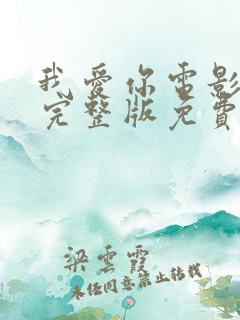 我愛你電影
完整版免費
梁雲霞
未经同意禁止转载